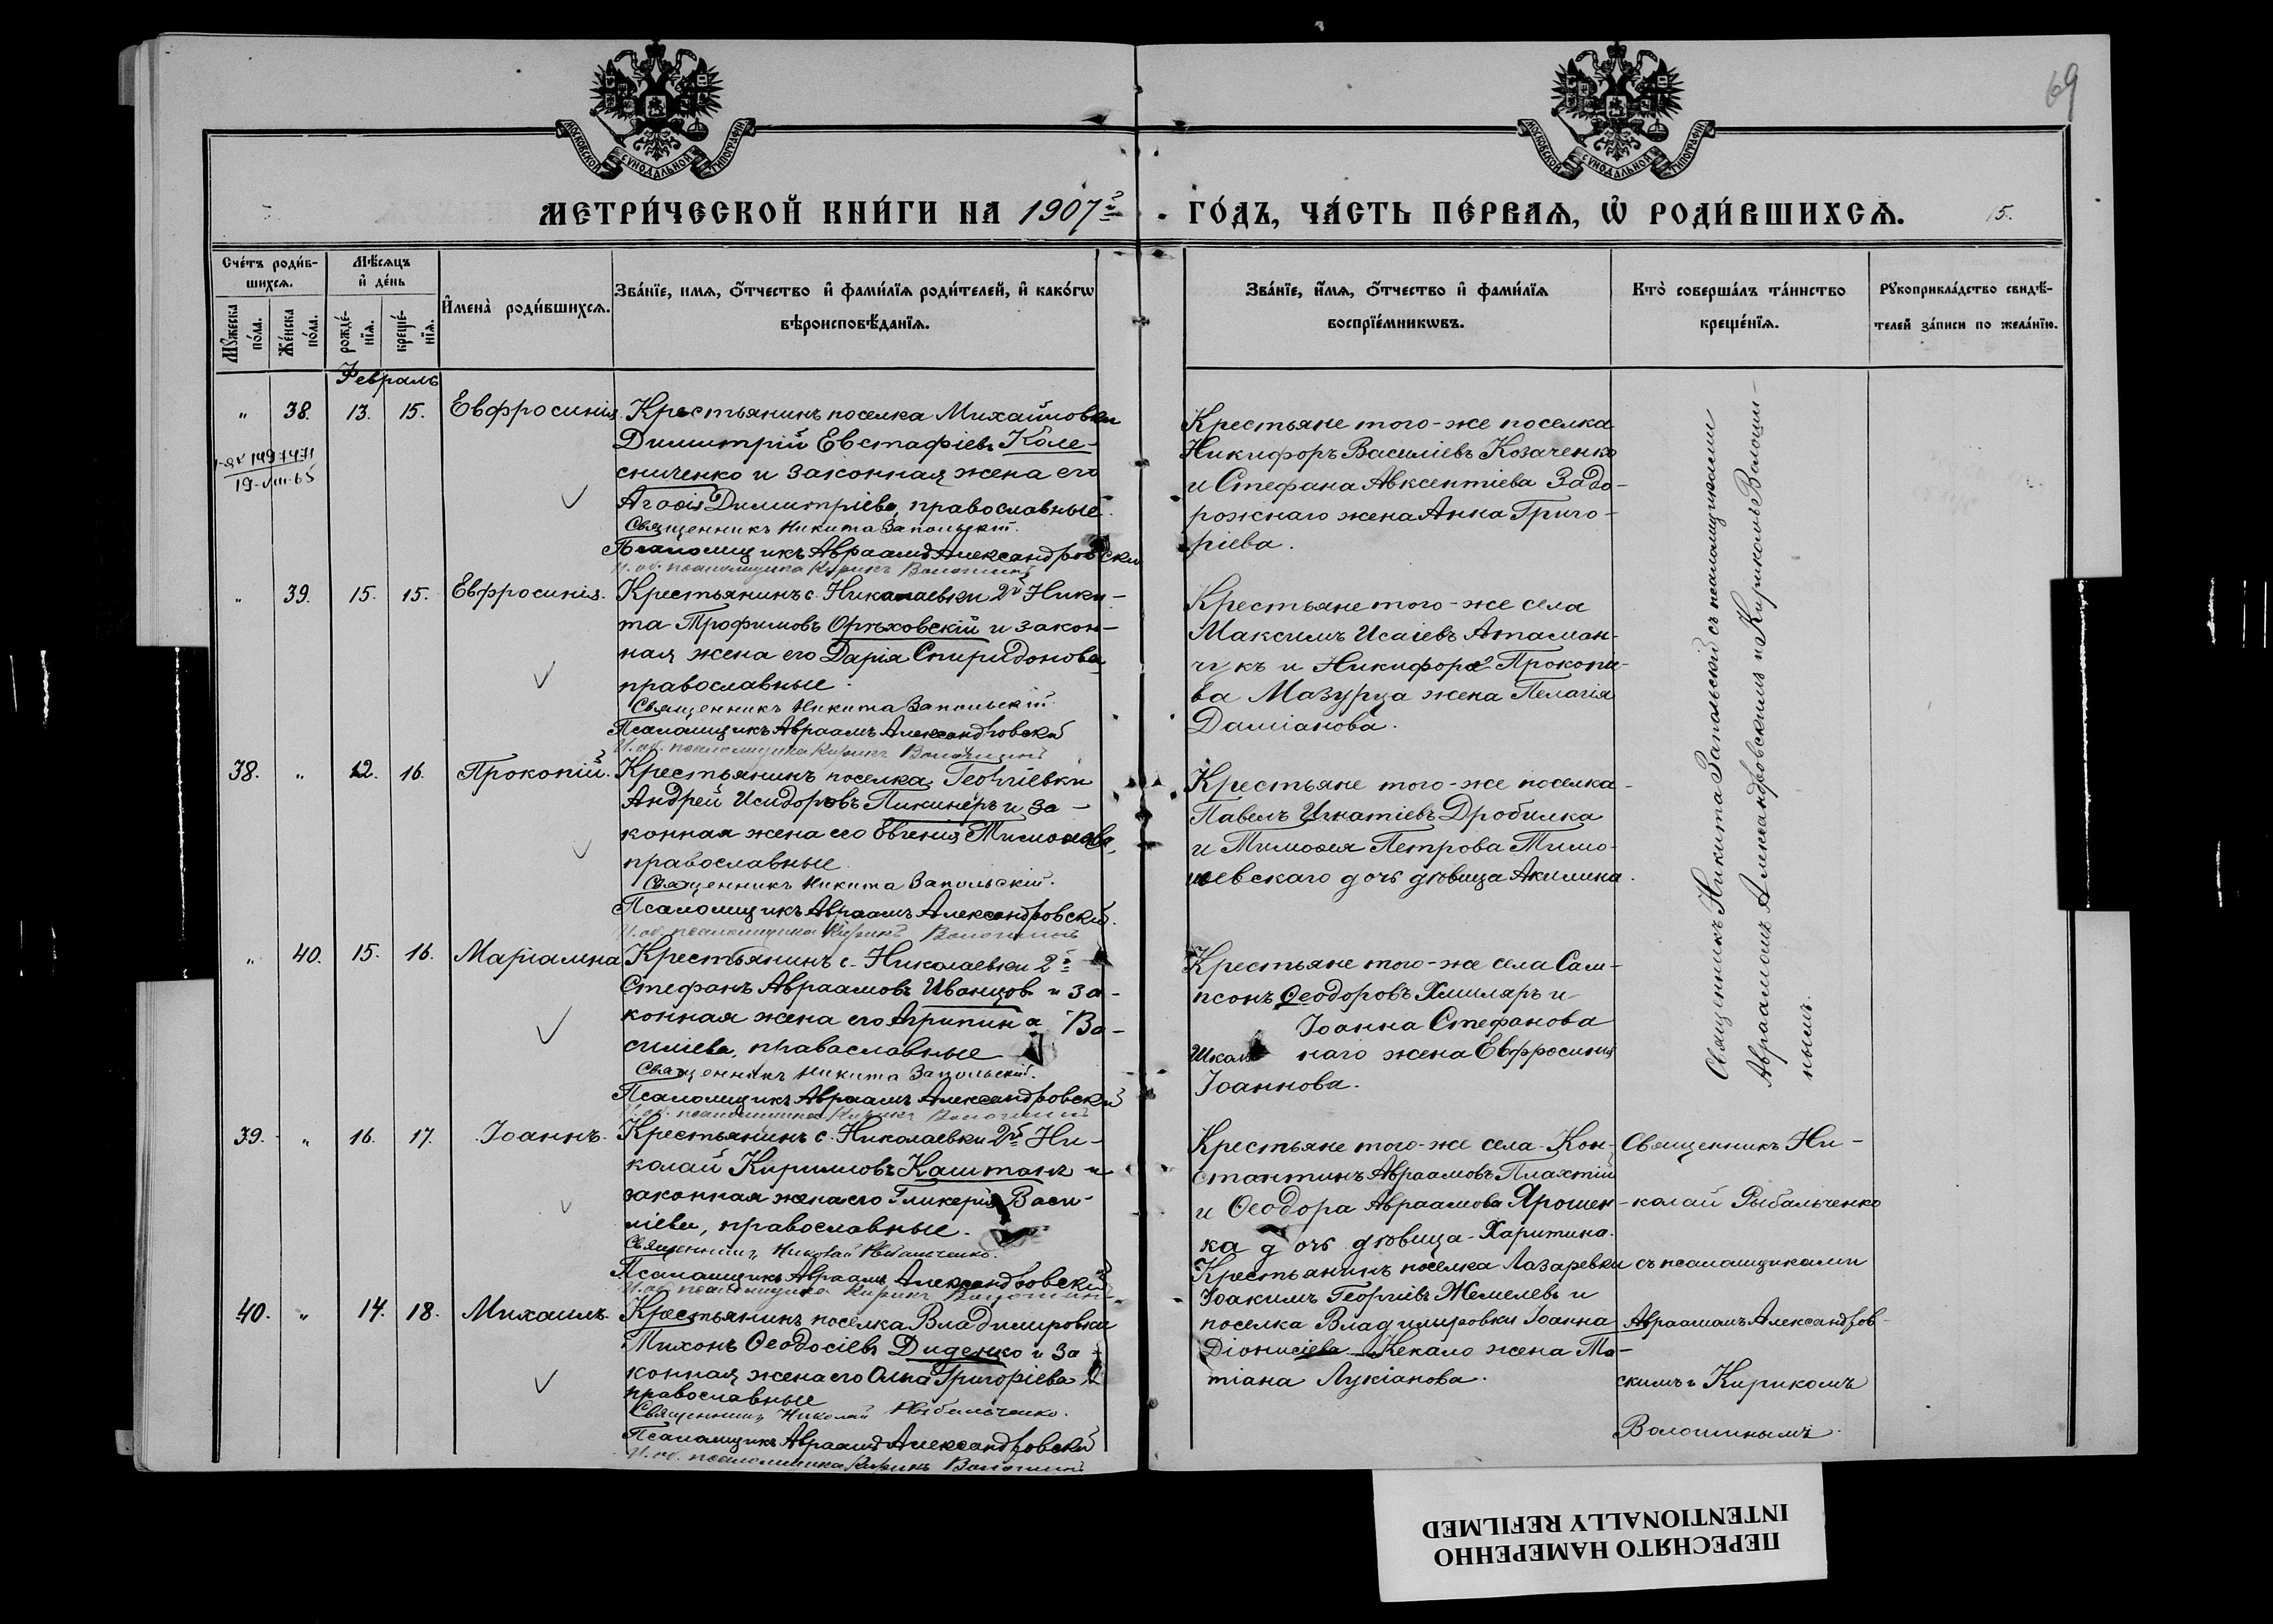 69
МОСКОВСКОЙ СѴНОДАЛЬНОЙ ТИПОГРАФІИ
МОСКОВСКОЙ СѴНОДАЛЬНОЙ ТИПОГРАФІИ
МЕТРИ́ЧЕСКОЙ КНИ́ГИ НА 1907й
ГО́ДЪ, ЧА́СТЬ ПЕ́РВАѦ, Ѽ РОДИ́ВШИХСѦ. 15.
Сче́тъ роди́в-
шихсѧ.
Мꙋжеска по́ла.
Же́нска по́ла.
Мѣ́сѧцъ
и҆ де́нь
рожде́-
нїѧ.
креще́-
нїѧ.
И҆мена̀ роди́вшихсѧ.
Зва́нїе, имѧ, ѻ҆́тчество и҆ фами́лїѧ роди́телей, и҆ како́гѡ
вѣроисповѣ́данїѧ.
Зва́нїе, и҆́мѧ, ѻ҆́тчество и҆ фами́лїѧ
воспрїе́мникѡвъ.
Кто̀ соверша́лъ та́инство
креще́нїѧ.
Рꙋкоприкла́дство свидѣ́-
телей за́писи по жела́нїю.
Февраль
" 38. 13. 15. Евфросинія.
19-VIII-65
Крестьянинъ поселка Михайловки
Димитрій Евстафіевъ Коле-
сниченко и законная жена его
Агафія Димитріева, православные.
Священникъ Никита Запольскій.
Псаломщикъ Авраамъ Александровскій
И. об. псаломщика Кирикъ Волошинъ
Крестьяне того-же поселка
Никифоръ Василіевъ Козаченко
и Стефана Авксентіева Задо-
рожнаго жена Анна Григо-
ріева.
" 39. 15. 15. Евфросинія.
Крестьянинъ с. Николаевки 2й Ники-
та Трофимовъ Орѣховскій и закон-
ная жена его Дарія Спиридонова,
православные.
Священникъ Никита Запольскій
Псаломщикъ Авраамъ Александровскій
И. об. псаломщика Кирикъ Волошинъ
Крестьяне того-же села
Максимъ Исаіевъ Атаман-
чукъ и Никифора Прокопіе-
ва Мазурца жена Пелагія
Даміанова.
38. " 12. 16. Прокопій.
Крестьянинъ поселка Георгіевки
Андрей Исидоровъ Пикинеръ и за-
конная жена его Евгенія Тимоѳеева,
православные
Священникъ Никита Запольскій.
Псаломщикъ Авраамъ Александровскій.
И. об. псаломщика Кирикъ Волошинъ
Крестьяне того-же поселка
Павелъ Игнатіевъ Дробилка
и Тимоѳея Петрова Тимо-
шевскаго дочь дѣвица Акилина.
" 40. 15. 16. Маріамна
Крестьянинъ с. Николаевки 2й
Стефанъ Авраамовъ Иванцов и за-
конная жена его Агрипина Ва-
силіева, православные
Священникъ Никита Запольскій.
Псаломщикъ Авраамъ Александровскій
И. об. псаломщика Кирикъ Волошинъ
Крестьяне того-же села Сам-
псонъ Ѳеодоровъ Хмиляръ и
Іоанна Стефанова
наго жена Евфросинія
Іоаннова.
Священникъ Никита Запольскій съ псаломщиками
Авраамомъ Александровскимъ и Кирикомъ Волоши-
нымъ.
39. " 16. 17. Іоаннъ.
Крестьянинъ с. Николаевки 2й Ни-
колай Кирилловъ Каштанъ и
законная жена его Гликерія Васи-
ліева, православные.
Священникъ Николай Рыбальченко.
Псаломщикъ Авраамъ Александровскій
И. об. псаломщика Кирикъ Волошинъ
Крестьяне того-же села Кон-
стантинъ Авраамовъ Плахтій
и Ѳеодора Авраамова Ярошен-
ка дочь дѣвица Харитина.
Священникъ Ни-
колай Рыбальченко
съ псаломщиками
Авраамомъ Александров-
скимъ и Кирикомъ
Волошинымъ.
40. " 14. 18. Михаилъ.
Крестьянинъ поселка Владимировки
Тихонъ Ѳеодосіевъ Диденко и за-
конная жена его Олга Григоріева,
православные
Священникъ Николай Рыбальченко.
Псаломщикъ Авраамъ Александровскій
И. об. псаломщика Кирикъ Волошинъ
Крестьянинъ поселка Лазаревки
Іоакимъ Георгіевъ Жемелевъ и
поселка Владимировки Іоанна
Діонисіева Кекало жена Та-
тіана Лукіанова.
ПЕРЕСНЯТО НАМЕРЕННО
INTENTIONALLY REFILMED